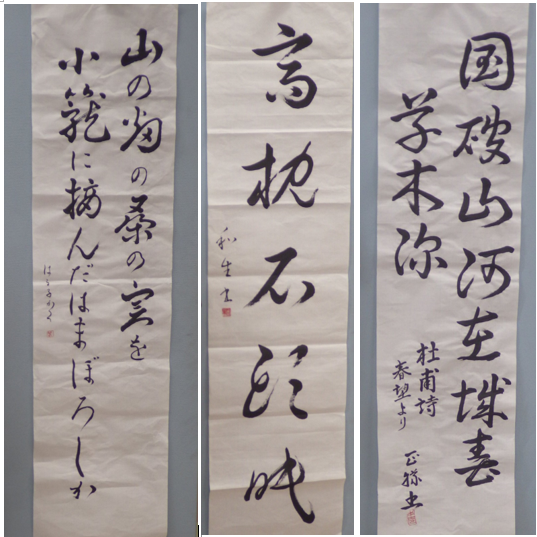 山の畑の桑の実を
小籠に摘んだはまぼろしか
高枕石頭眠
和生書
国破山河在城春
草木深
杜甫詩
春望より